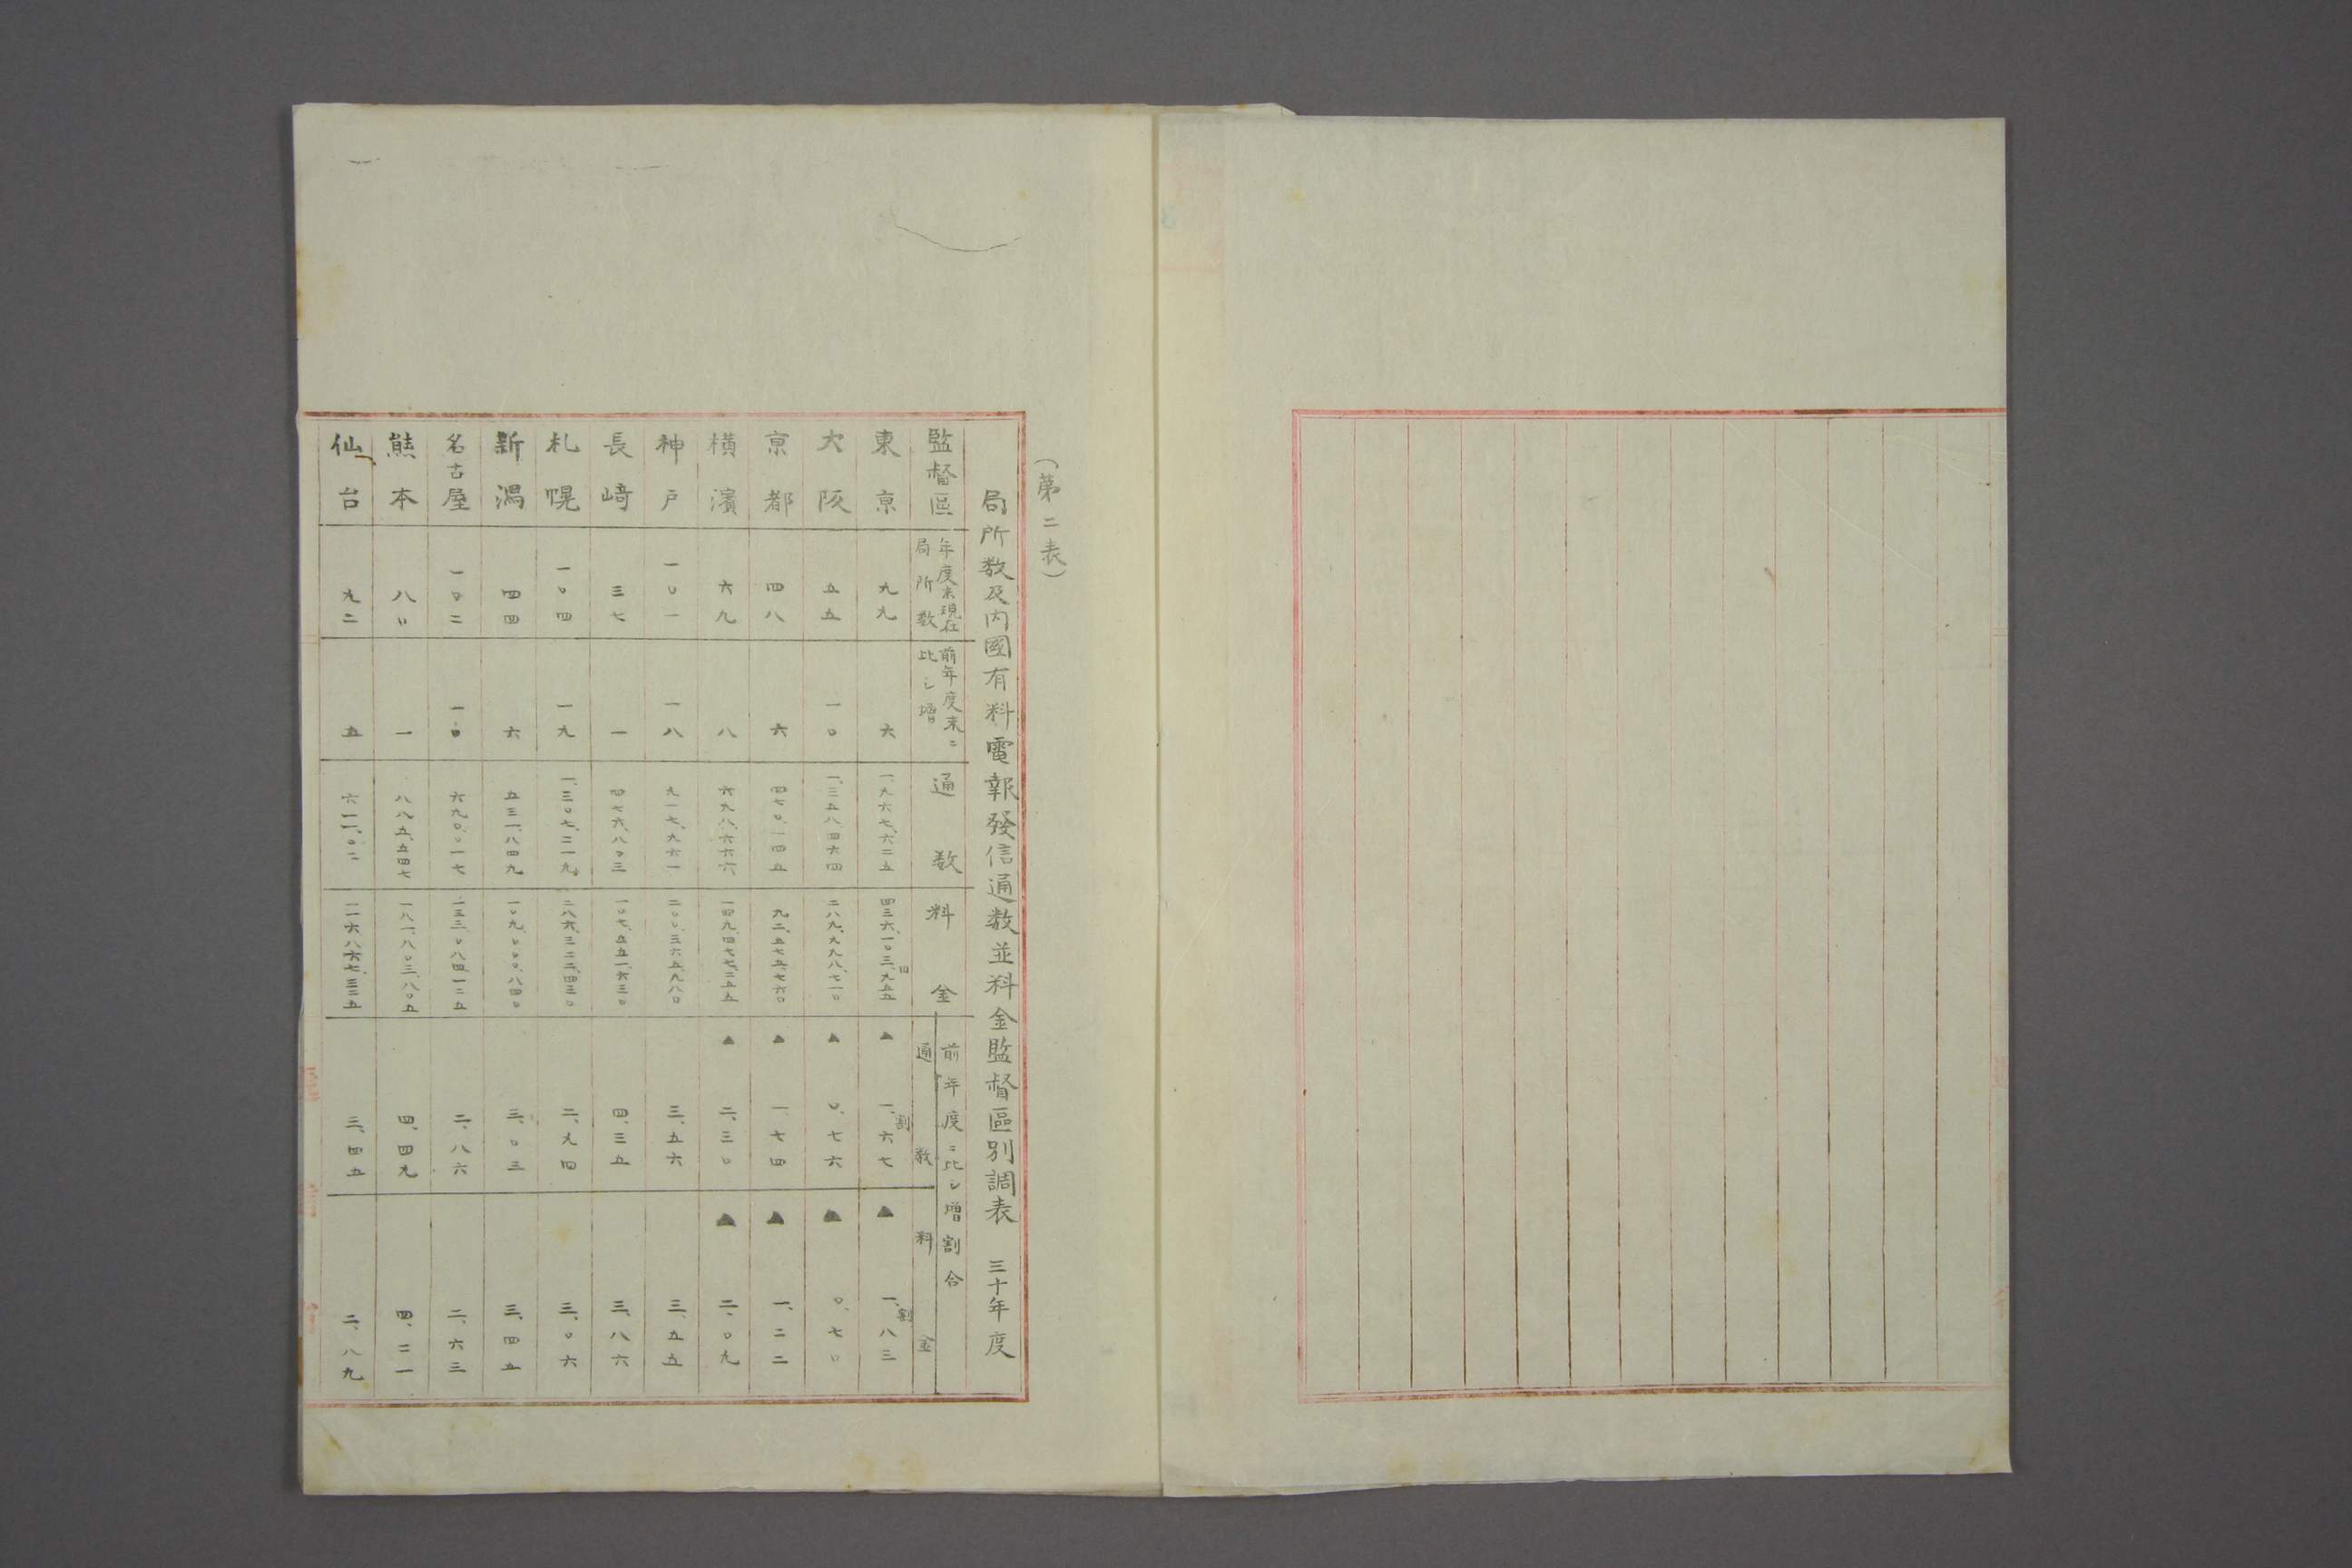 (第二表)
局所数及内國有料電報發信通数並料金監督區別調表 三十年度
監督區 年度末現在局所数 前年度末ニ比シ増 通数 料金 前年度ニ比シ増割合 通数 料金
東京 九九 六 一、九六七、六二五 四三六、一〇三、九五五 ▲ 一、六七割 ▲ 一、八三割
大阪 五五 一〇 一、三五八四六四 二八九、九九八、七一〇 ▲ 〇、七六 ▲ 〇、七〇
京都 四八 六 四七〇、一四五 九二、五七五、七六〇 ▲ 一、七四 ▲ 一、二二
横濱 六九 八 六九八、六六六 一四九、四七七、二五五 ▲ 二、三〇 ▲ 二、〇九
神戸 一〇一 一八 九一七、九六一 二〇〇、三六五、九八〇 三、五六 三、五五
長崎 三七 一 四七六、八〇三 一〇七、五五一、六三〇 四、三五 三、八六
札幌 一〇四 一九 一、三〇七、二一九 二八六、三二二、四三〇 二、九四 三、〇六
新潟 四四 六 五三一、八四九 一〇九、〇〇〇、八四〇 三、〇三 三、四五
名古屋 一〇二 一〇 六九〇、〇一七 一三二、〇八四、一二五 二、八六 二、六三
熊本 八〇 一 八八五、五四七 一八一、八〇三、八〇五 四、四九 四、二一
仙台 九二 五 三、四五 二、八九